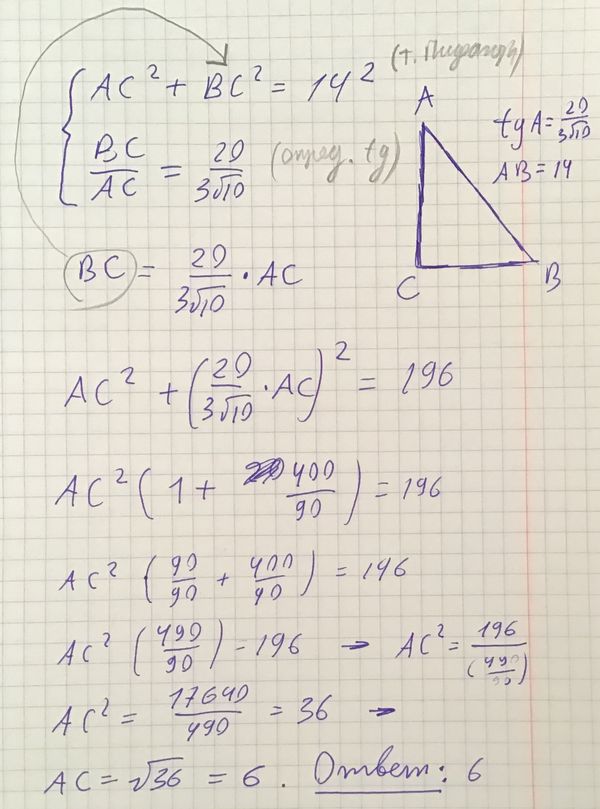 AC² + BC² = 14² (т. Пифагора)
BC/AC = 20/3√10 (опред. tg)
A
tg A = 20/3√10
AB = 14
C B
BC = 20/3√10 · AC
AC² + (20/3√10 · AC)² = 196
AC² (1 + 400/90) = 196
AC² (90/90 + 400/90) = 196
AC² (490/90) = 196 → AC² = 196/(490/90)
AC² = 17640/490 = 36 →
AC = √36 = 6. Ответ: 6